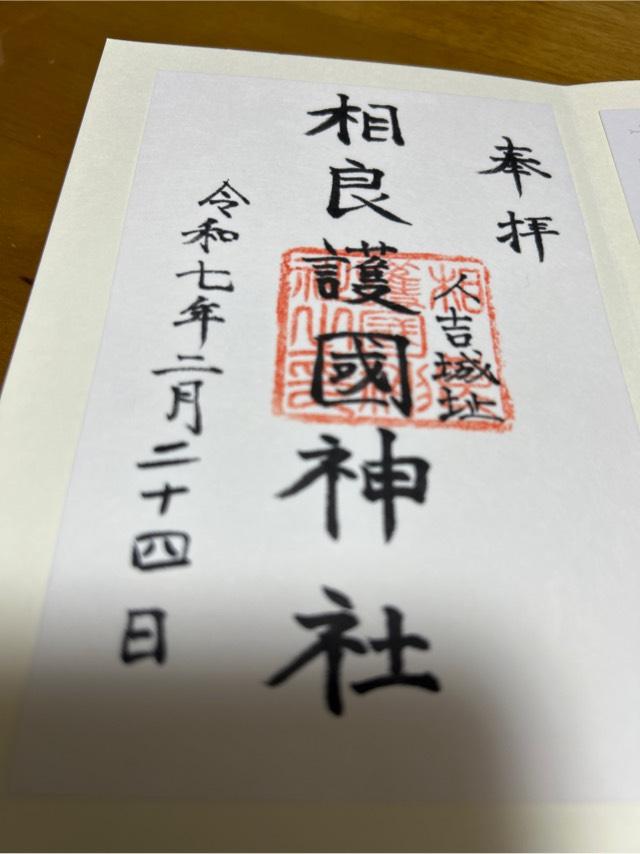 奉拝
人吉城址
相良護國神社
令和七年二月二十四日